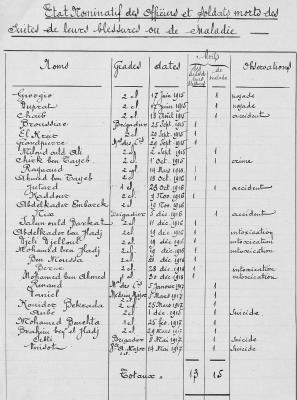 Etat Nominatif des Officiers et Soldats morts des
Suites de leurs blessures ou de Maladie
Morts
Noms Grades dates de maladie Observations
Giorgio 2 cl 17 Juin 1915 1 noyade
Duprat 2 cl 17 Juin 1915 1 noyade
Chaib 2 cl 13 Août 1915 1 accident
Broussiac Brigadier 25 Sept. 1915 1
El Krue 2 cl 20 Sept. 1915 1
Grandpierre Mal des C. 20 Sept. 1915 1
Milnid ould Ali 2 cl 2 Sept. 1915 1
Chick ben Tayeb 2 cl 1 Oct. 1915 1 crime
Raynaud 2 cl 1916
Ahmed ben Tayeb 2 cl 1916
Gutard 1 cl 26 Oct 1916 1 accident
Kaddour 2 cl 9 Nov 1916 1
Abdelkader Embarek 2 cl Nov 1916 1
Nix Brigadier 3 déc 1916 1 accident
Salem ould Barkat 2 cl déc 1916 1
Abdelkader ben Hadj 2 cl 19 déc 1916 1 intoxication
Djeli Djelloul 2 cl 19 déc 1916 1 intoxication
Mohamed ben Hadj 2 cl 20 déc 1916 1 intoxication
Ben Moussa 2 cl 20 déc 1916
Berne 2 cl 28 déc 1916 1 intoxication
Mohamed ben Ahmed 1 cl 30 déc 1916 1 intoxication
Rimaud Mal des C. 5 Janvier 1917 1
Tonniel Médecin Major 5 Mars 1917 1
Kouider Bekeada 2 cl 25 Mars 1917 1
Aubé 2 cl 1 déc 1915 1 Suicide
Mohamed Bouhta 1 cl 25 fév 1917 1
Brahim ben el Hadj 2 cl Mars 1917 1
Setti Brigadier 8 Mai 1917 1 Suicide
14 Mai 1917 1 Suicide
Totaux 13 15